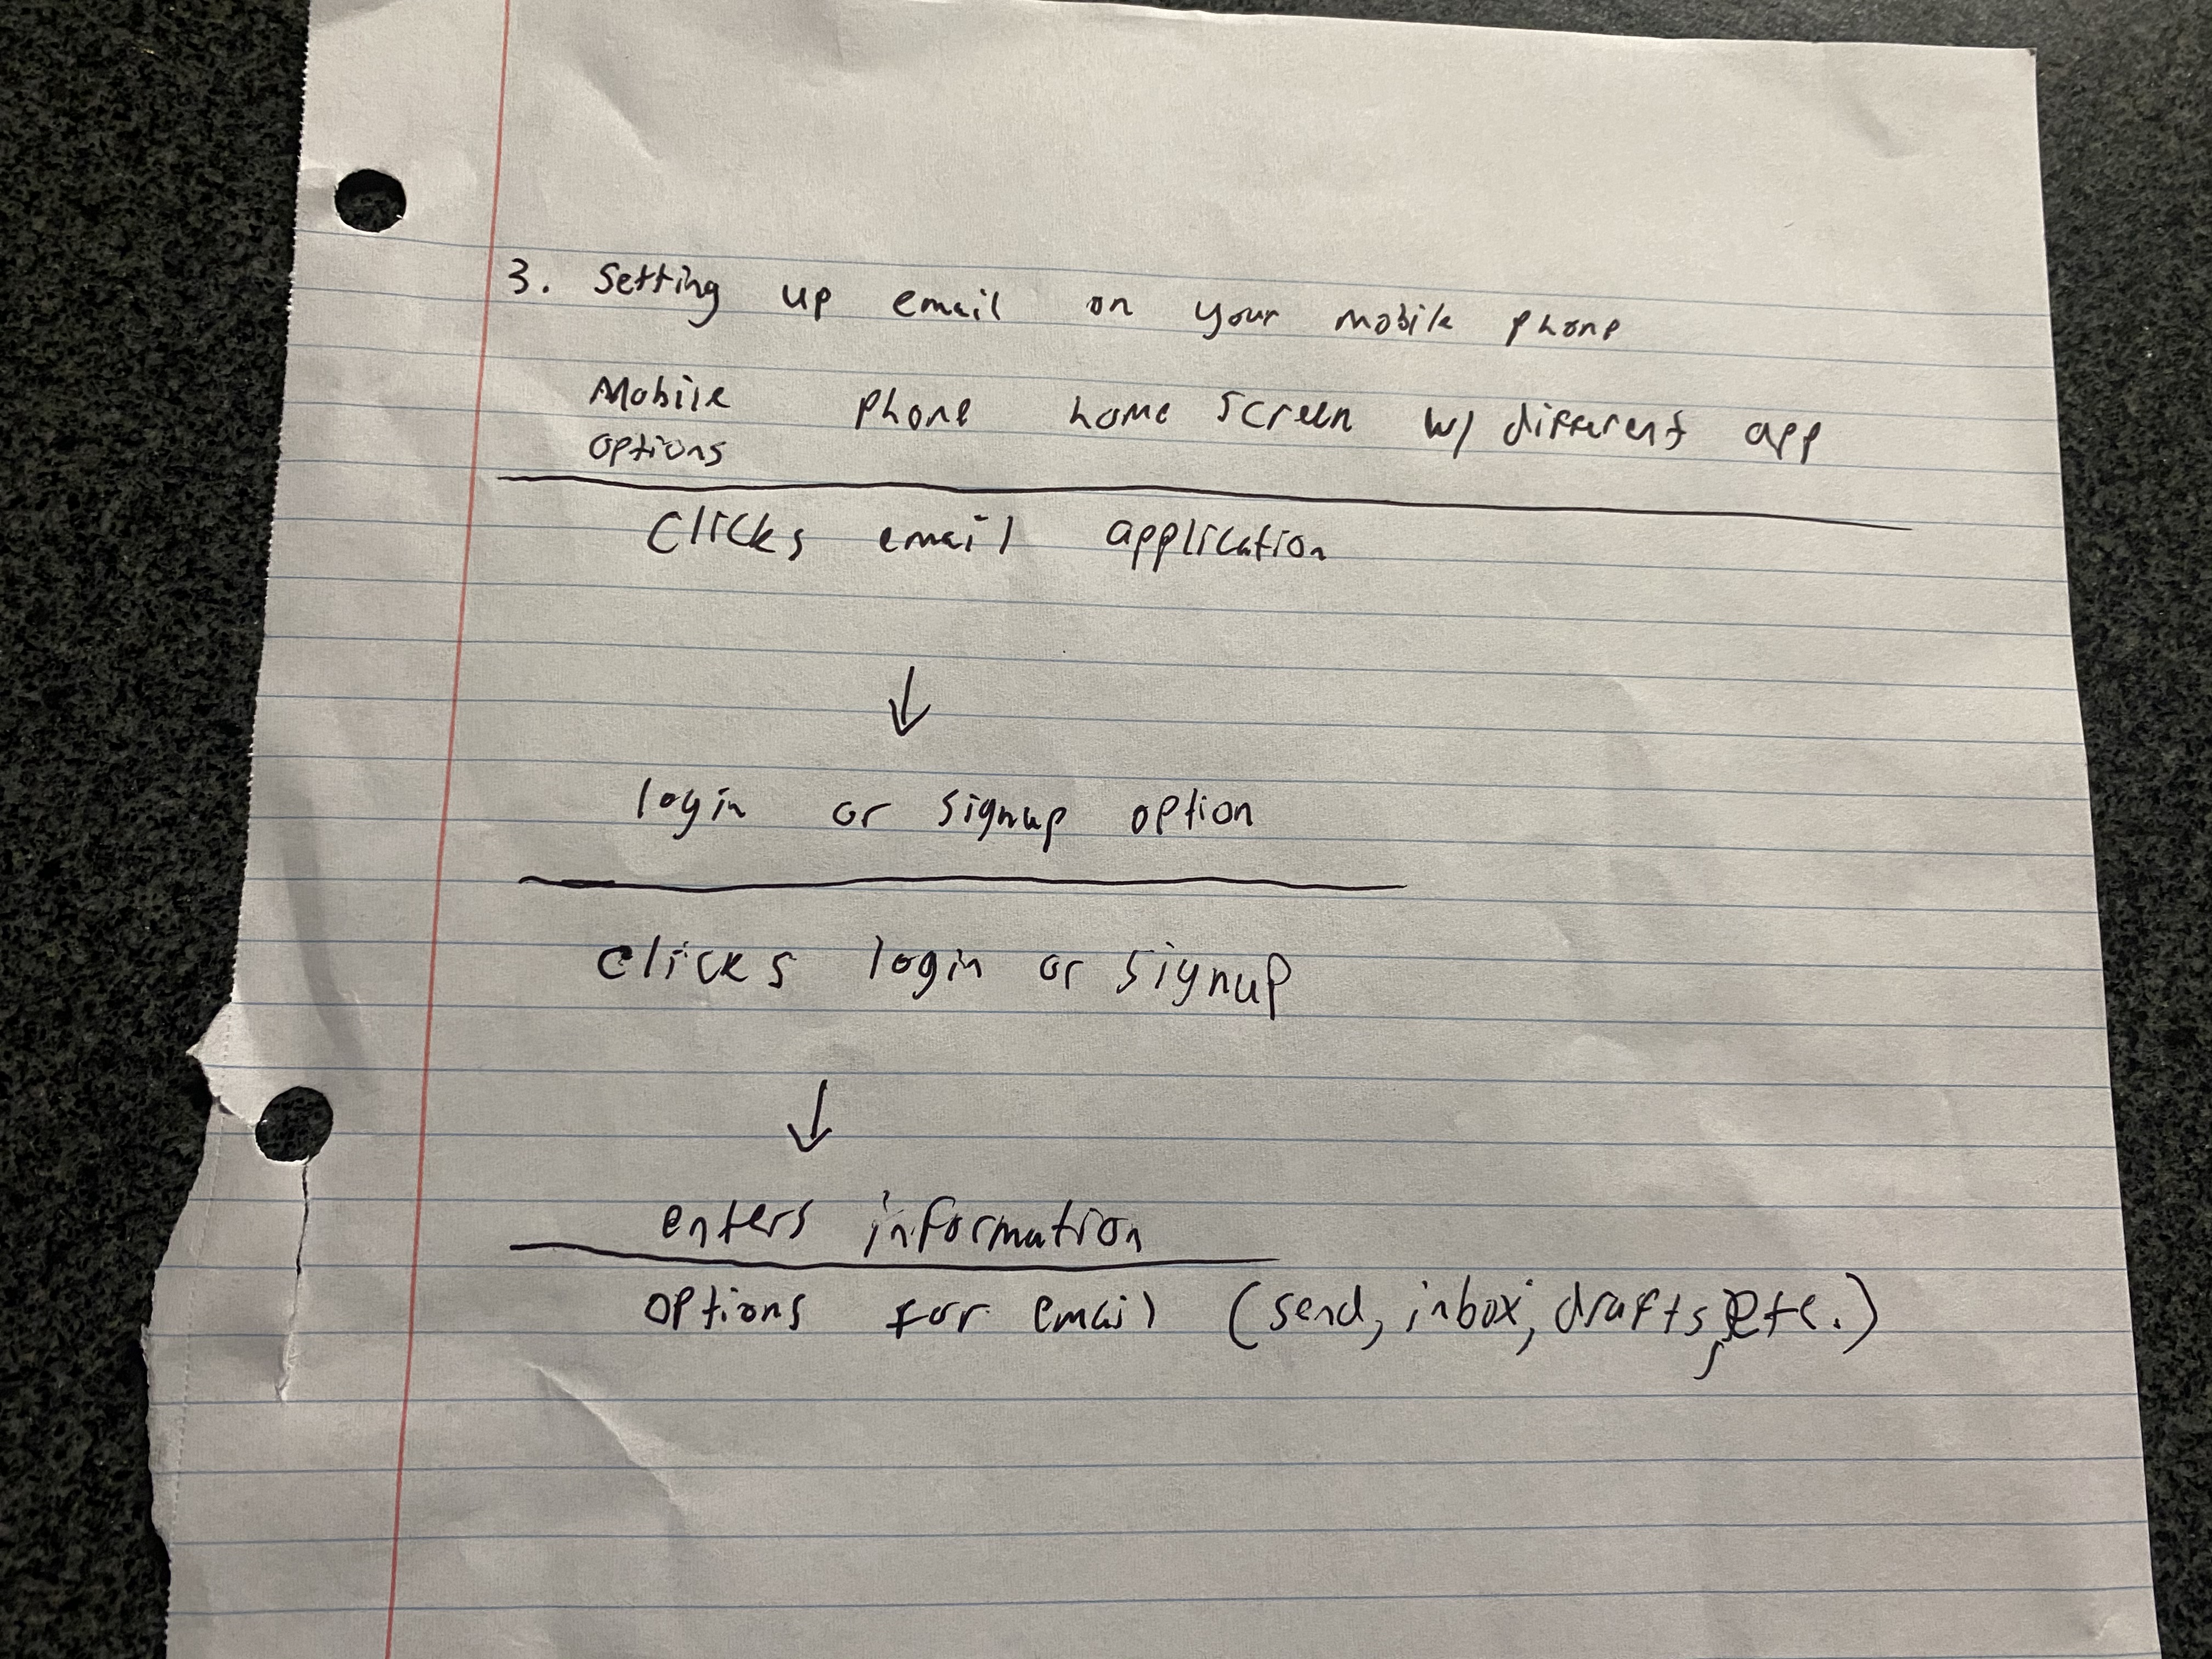 3. Setting up email on your mobile phone
Mobile phone home screen w/ different app
options
Clicks email application
↓
login or signup option
clicks login or signup
↓
enters information
options for email (send, inbox, drafts, etc.)